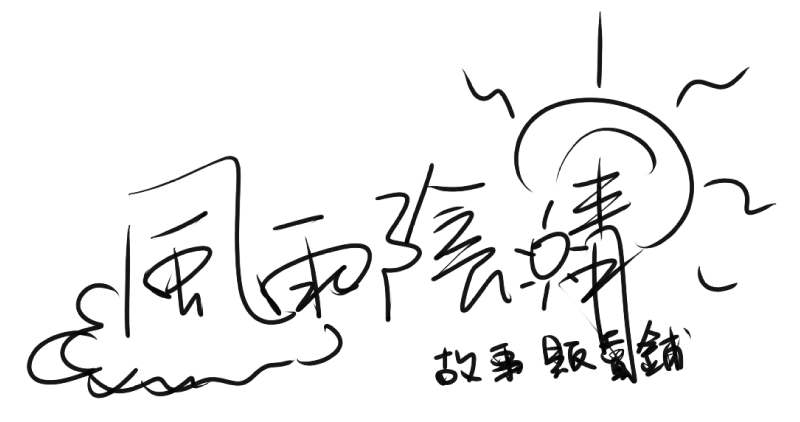 風雨陰晴
故事販賣鋪